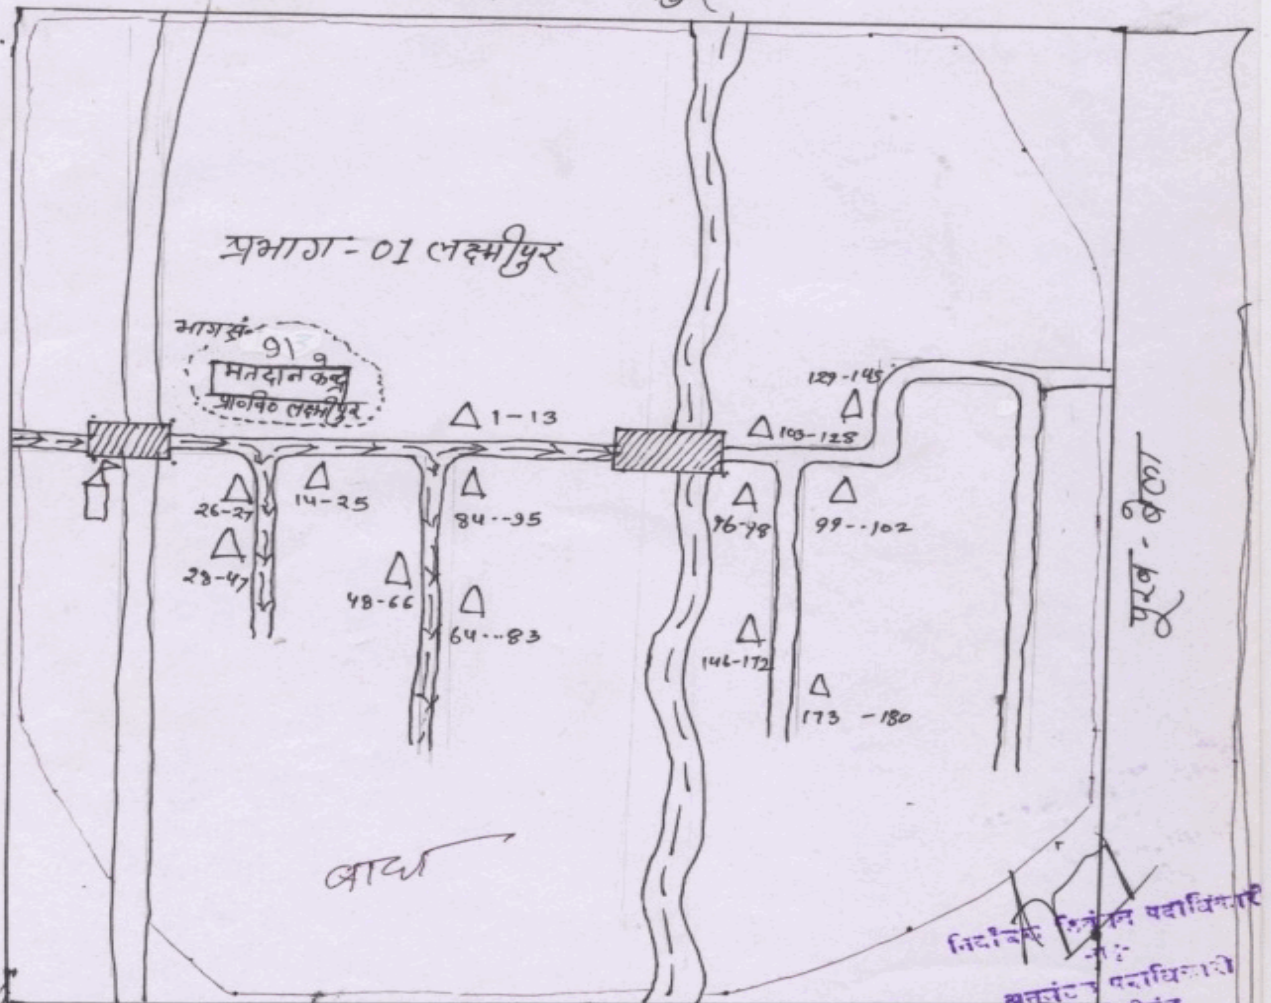 प्रभाग - 01 लक्ष्मीपुर
भाग सं-
91
मतदान केन्द्र
प्रा०वि० लक्ष्मीपुर
1-13
129-145
103-128
26-27
14-25
84--95
96-98
99--102
28-47
48-66
64---83
146-172
173 -180
पूरब - बेला
बाधा
पदाधिकारी